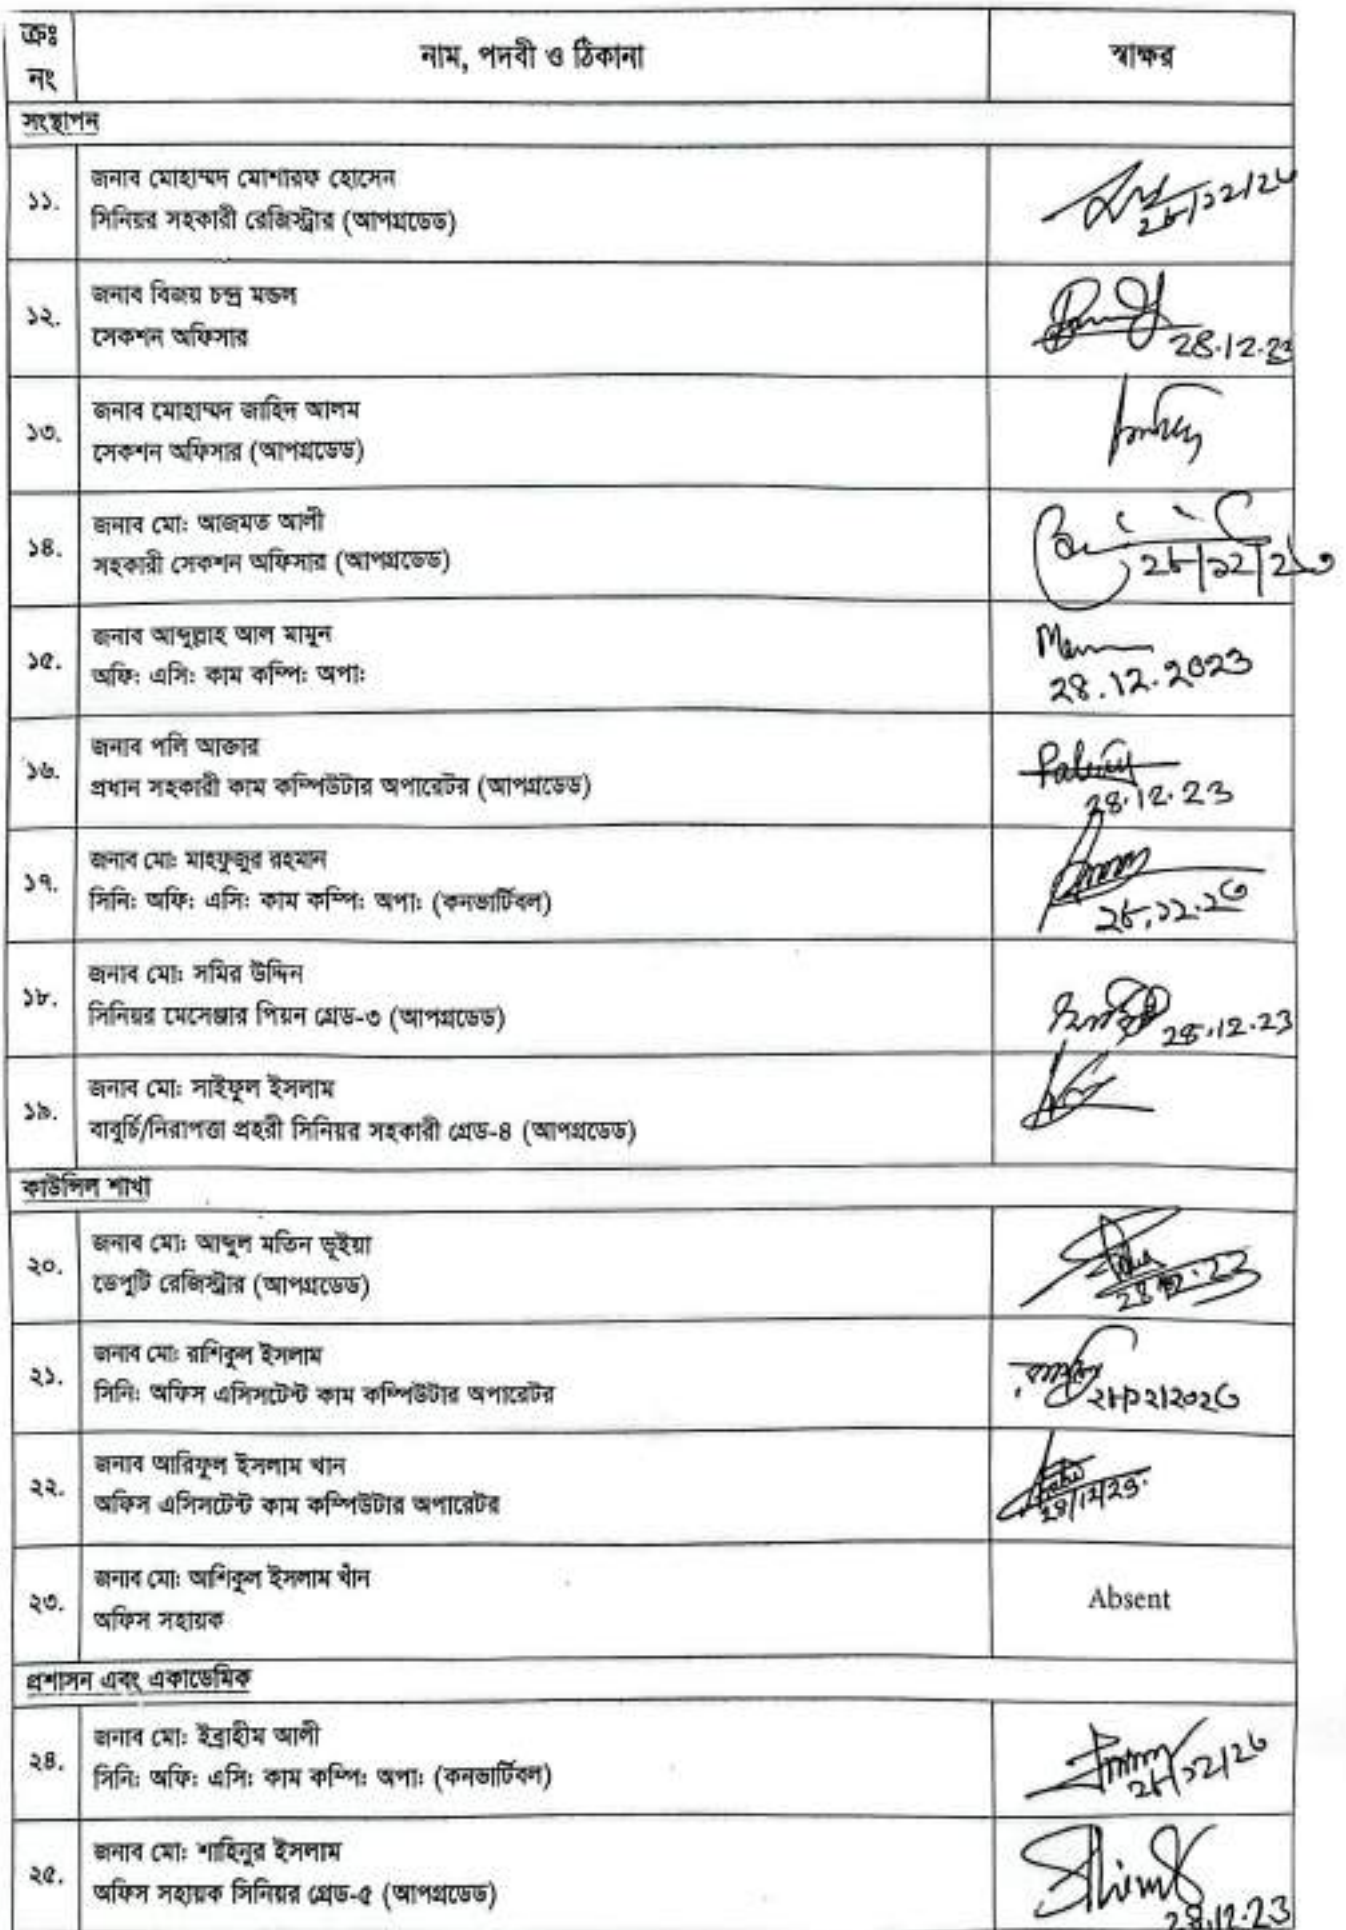 ক্রঃ নং
নাম, পদবী ও ঠিকানা
স্বাক্ষর
সংস্থাপন
১১.
জনাব মোহাম্মদ মোশারফ হোসেন
সিনিয়র সহকারী রেজিস্ট্রার (আপগ্রডেড)
২৮/১২/২৩
১২.
জনাব বিজয় চন্দ্র মন্ডল
সেকশন অফিসার
28.12.23
১৩.
জনাব মোহাম্মদ জাহিদ আলম
সেকশন অফিসার (আপগ্রডেড)
১৪.
জনাব মো: আজমত আলী
সহকারী সেকশন অফিসার (আপগ্রডেড)
২৮/১২/২৩
১৫.
জনাব আব্দুল্লাহ আল মামুন
অফি: এসি: কাম কম্পি: অপা:
28.12.2023
১৬.
জনাব পলি আক্তার
প্রধান সহকারী কাম কম্পিউটার অপারেটর (আপগ্রডেড)
28.12.23
১৭.
জনাব মো: মাহফুজুর রহমান
সিনি: অফি: এসি: কাম কম্পি: অপা: (কনভার্টিবল)
২৮.১২.২৩
১৮.
জনাব মো: সমির উদ্দিন
সিনিয়র মেসেঞ্জার পিয়ন গ্রেড-৩ (আপগ্রডেড)
28.12.23
১৯.
জনাব মো: সাইফুল ইসলাম
বাবুর্চি/নিরাপত্তা প্রহরী সিনিয়র সহকারী গ্রেড-৪ (আপগ্রডেড)
কাউন্সিল শাখা
২০.
জনাব মো: আব্দুল মতিন ভূইয়া
ডেপুটি রেজিস্ট্রার (আপগ্রডেড)
28.12.23
২১.
জনাব মো: রাশিকুল ইসলাম
সিনি: অফিস এসিসটেন্ট কাম কম্পিউটার অপারেটর
২৮/১২/২০২৩
২২.
জনাব আরিফুল ইসলাম খান
অফিস এসিসটেন্ট কাম কম্পিউটার অপারেটর
28/12/23.
২৩.
জনাব মো: আশিকুল ইসলাম খাঁন
অফিস সহায়ক
Absent
প্রশাসন এবং একাডেমিক
২৪.
জনাব মো: ইব্রাহীম আলী
সিনি: অফি: এসি: কাম কম্পি: অপা: (কনভার্টিবল)
২৮/১২/২৩
২৫.
জনাব মো: শাহিনুর ইসলাম
অফিস সহায়ক সিনিয়র গ্রেড-৫ (আপগ্রডেড)
28.12.23